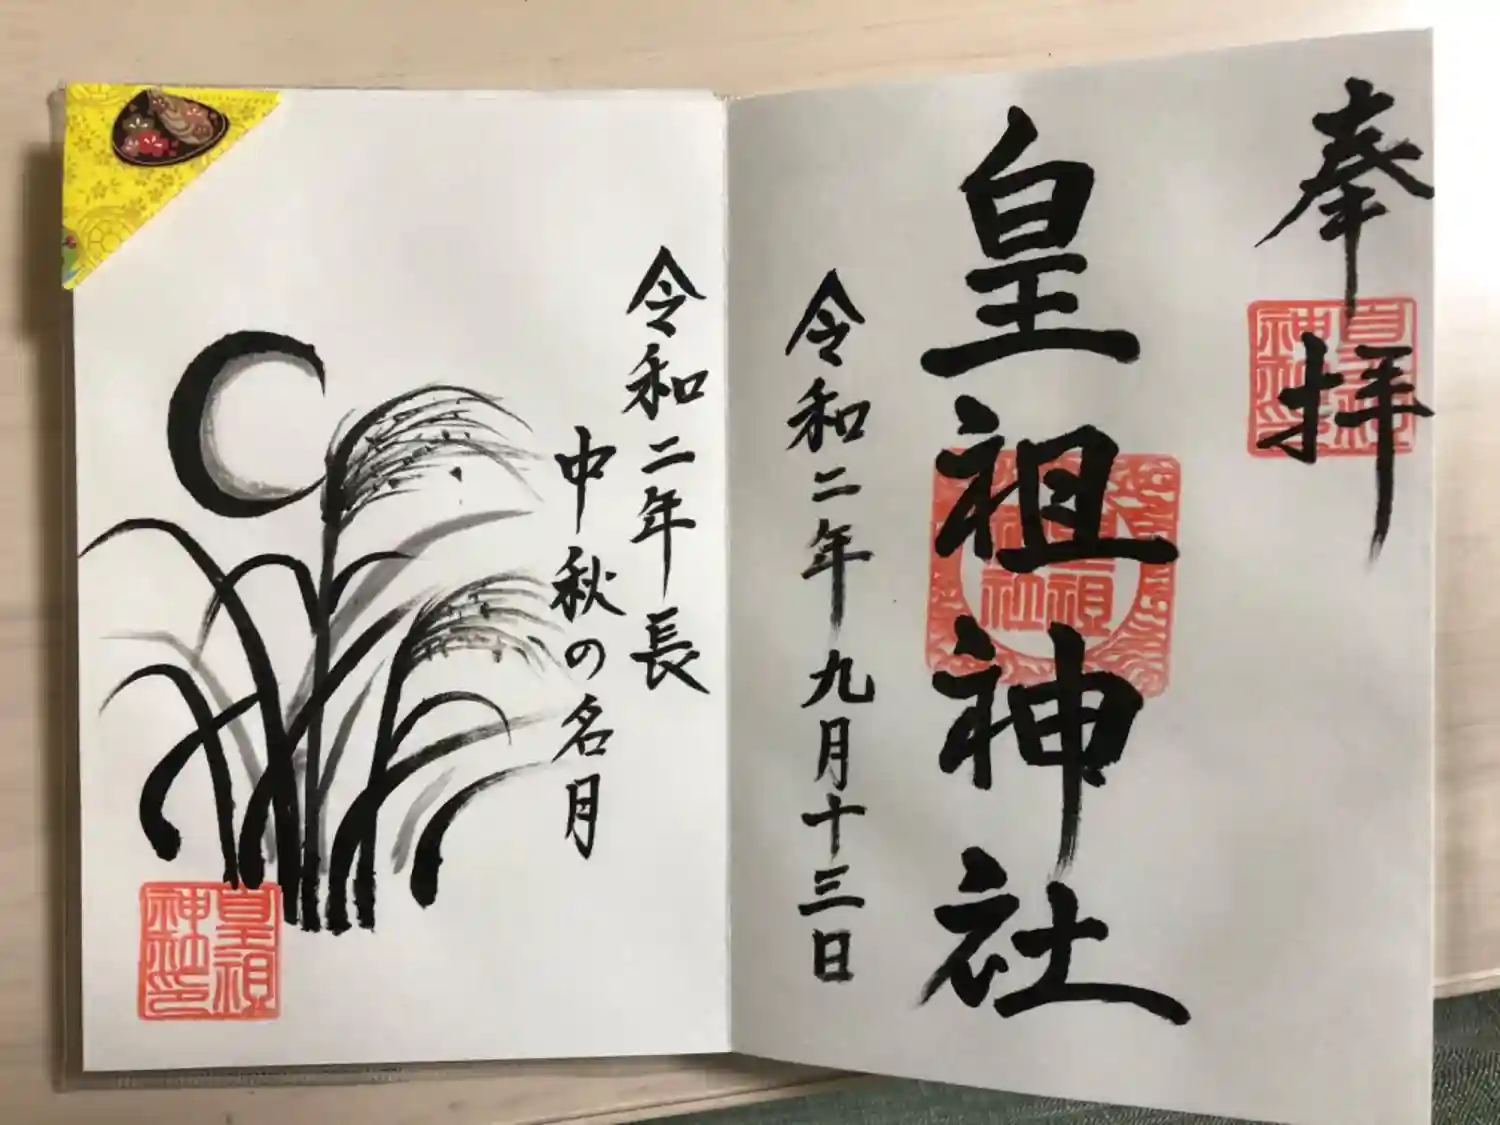 奉拝
皇祖神社
令和二年九月十三日
令和二年長
中秋の名月
皇祖
神社印